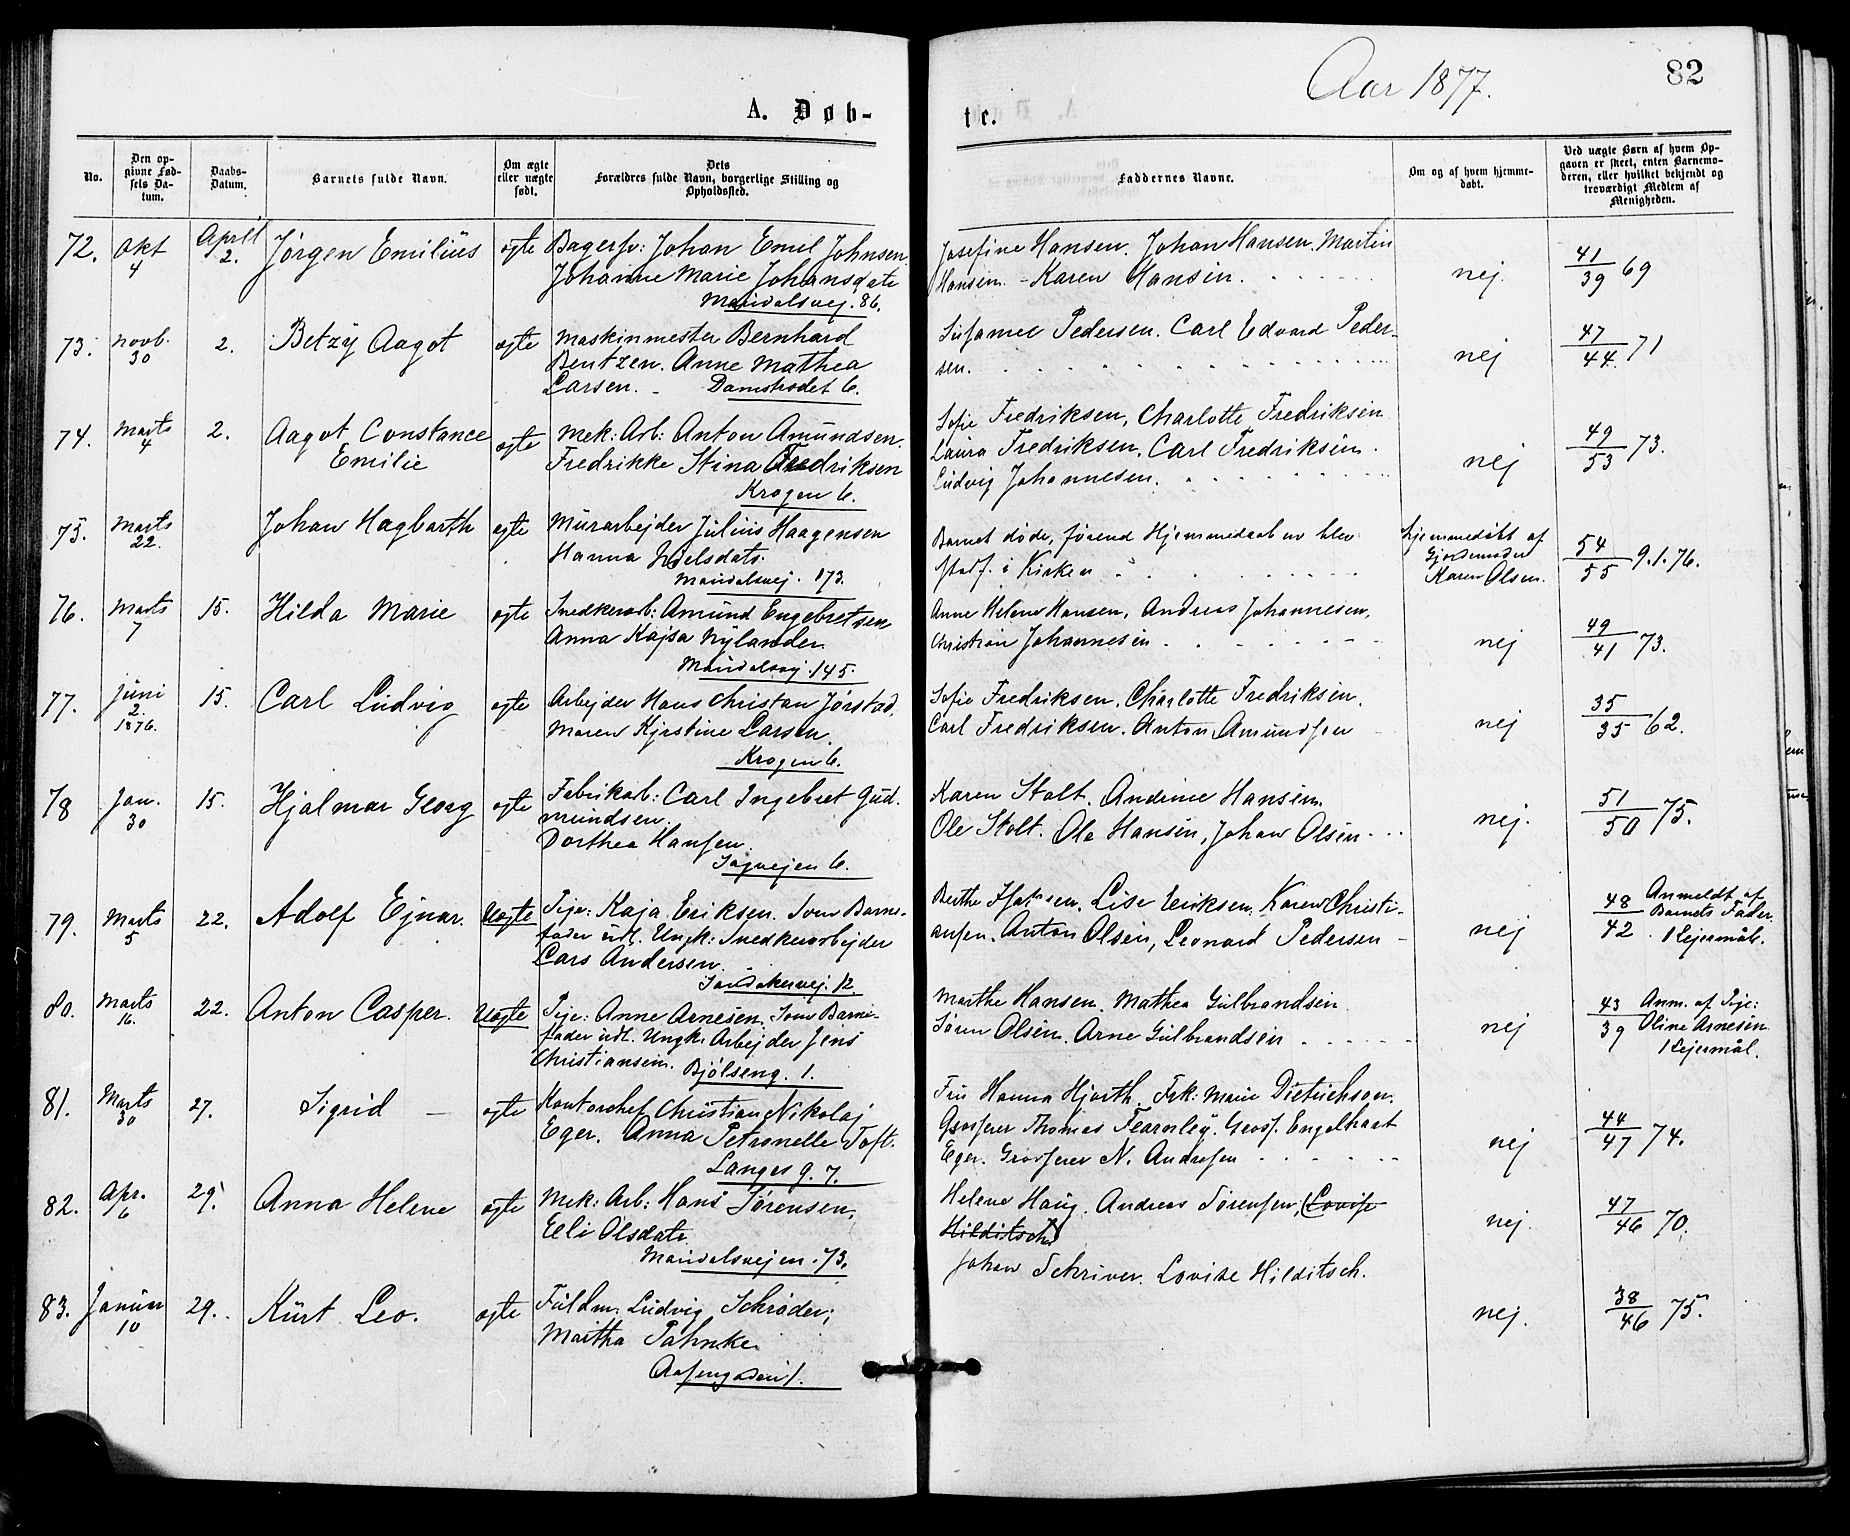 Aar 1877.
82
A. Døb-
te.
No.
Den op-
givne Fød-
sels Da-
tum.
Daabs-
Datum.
Barnets fulde Navn.
Om ægte
eller uægte
født.
Dets
Forældres fulde Navn, borgerlige Stilling og
Opholdssted.
Faddernes Navne.
Om og af hvem hjemme-
døbt.
Ved uægte Børn af hvem Op-
gaven er skeet, enten Barnemo-
deren, eller hvilket bekjendt og
troværdigt Medlem af
Menigheden.
72. Okt 4 April 2. Jörgen Emilius ægte Bagersv: Johan Emil Johnsen
Johanne Marie Johansdatr
Maridalsvej. 86.
Josefine Hansen. Johan Hansen. Martin
Hansen. - Karen Hansen.
nej. 41/39 69
73. Novb. 30 2. Betzy Aagot ægte Maskinmester Bernhard
Bentzen. Anne Mathea
Larsen. - Damstrædet 6.
Susanne Pedersen. Carl Edvard Peder-
sen.
nej 47/44 71
74. Marts 4 2. Aagot Constance
Emilie
ægte Mek: Arb: Anton Amundsen.
Fredrikke Stina Fredriksen
Krogen 6.
Sofie Fredriksen, Charlotte Fredriksen
Laura Fredriksen. Carl Fredriksen.
Ludvig Johannesen.
nej 49/53 73.
75. Marts 22. Johan Hagbarth ægte Murarbejder Julius Haagensen
Hanna Nielsdatr.
Maridalsvej. 173.
Barnet döde, förend Hjemmedaaben blev
stadf. i Kirken
hjemmedöbt af
Gjordemoder
Karen Olsen.
54/55 9.1.76.
76. Marts 7 15. Hilda Marie ægte Snedkerarb: Amund Engebretsen
Anna Kajsa Nylander.
Maridalsvej. 145.
Anne Helene Hansen, Andreas Johannesen,
Christian Johannesen
nej 49/41 73.
77. Juni 2. 1876. 15. Carl Ludvig ægte Arbejder Hans Christian Jörstad.
Maren Kjerstine Larsen.
Krogen 6.
Sofie Fredriksen, Charlotte Fredriksen.
Carl Fredriksen. Anton Amundsen
nej 35/35 62.
78 Jan. 30 15. Hjalmar Georg ægte Fabrikarb: Carl Ingebret Gud-
mundsen.
Dorthea Hansen.
Sagvejen 6.
Karen Stolt. Andrine Hansen.
Ole Stolt. Ole Hansen, Johan Olsen
nej. 51/50 75.
79. Marts 5 22. Adolf Ejnar. Uægte Pige: Kaja Eriksen. Som Barne-
fader udl. Ungk: Snedkerarbejder
Lars Andersen.
Sandakervej. 12
Berthe Hansen. Lise Eriksen. Karen Christi-
ansen. Anton Olsen, Leonard Pedersen -
nej 48/42 Anmeldt af
Barnets Fader.
1 Lejermål.
80. Marts 16. 22. Anton Casper. Uægte Pige: Anne Arnesen. Som Barne-
fader udl. Ungk: Arbejder Jens
Christiansen. Bjölseng. 1.
Marthe Hansen. Mathea Gulbrandsen
Sören Olsen. Arne Gulbrandsen
nej 43/39 Anm. af Pige:
Oline Arnesen
1 Lejermål.
81. Marts 30 27. Sigrid - ægte Kontorchef Christian Nikolaj
Eger. Anna Petronelle Toft.
Langes g. 7.
Fru Hanna Hjorth. Frk: Marie Dietrichson.
Grosserer Thomas Fearnley. Gross. Engelhart
Eger. Grosserer N. Andresen
nej 44/47 74.
82. Apr. 6 29. Anna Helene ægte Mek: Arb: Hans Sörensen,
Eli Olsdatr.
Maridalsvejen. 73.
Helene Haug. Andreas Sörensen, Lovise
Hilditsch
nej. 47/46 70.
83. Januar 10 29. Kurt Leo. ægte Fuldm: Ludvig Schröder;
Martha Pahnke.
Aasengaden 1.
Johan Schriver. Lovise Hilditsch.
nej. 38/46 75.